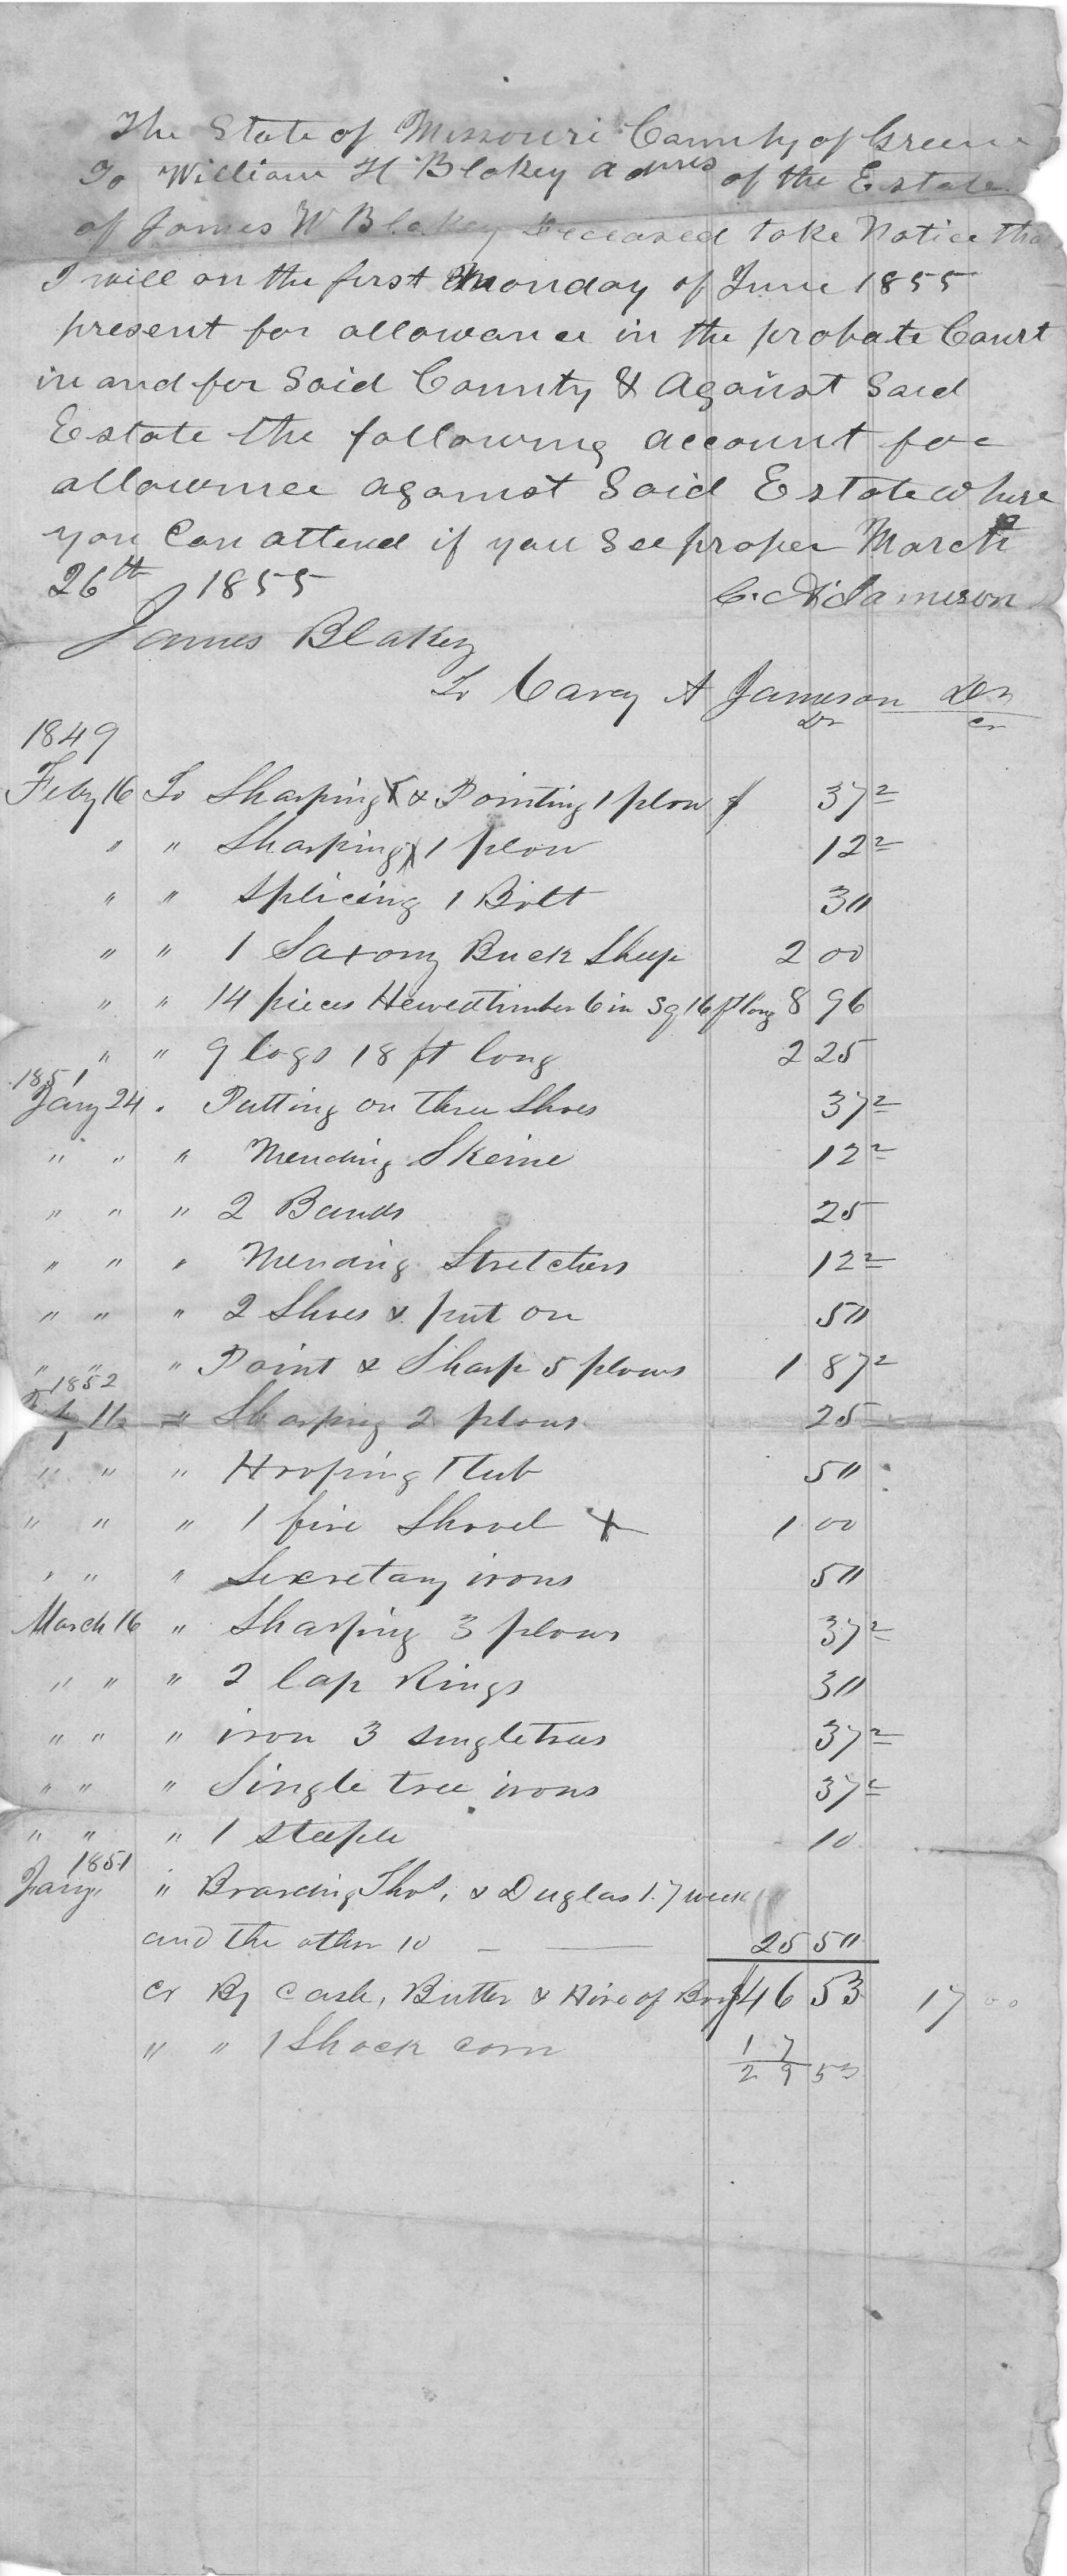 The State of Missouri County of Greene
To William H Blakey adms of the Estate
of James W Blakey Deceased take Notice tha
I will on the first Monday of June 1855
present for allowance in the probate Court
in and for Said County & Against Said
Estate the following account for
allowance against Said Estate where
you Can attend if you See proper March
26th 1855 C. A Jameson
James Blakey
To Carey A Jameson Dr
Dr Cr
1849
Feby 16 To Sharping & Pointing 1 plow $ 37 2
" " Sharping 1 plow 12 2
" " Splicing 1 Bolt 30
" " 1 Saxony Buck Sheep 2 00
" " 14 pieces Hewed timber 6 in Sq 16 ft long 8 96
" " 9 logs 18 ft long 2 25
1851
Jany 24 " Putting on three Shoes 37 2
" " " Mending Skeine 12 2
" " " 2 Bands 25
" " " Mending Stretchers 12 2
" " " 2 Shoes & put on 50
" " " Point & Sharp 5 plows 1 87 2
1852
11 " Sharping 2 plows 25
" " " Hooping 1 tub 50
" " " 1 fire Shovel X 1 00
" " " Secretary irons 50
March 16 " Sharping 3 plows 37 2
" " " 2 lap Rings 30
" " " iron 3 singletrees 37 2
" " " Single tree irons 37 2
" " " 1 steeple 10
1851
Jany " Boarding Thos. & Duglas 17 week
and the other 10 — — 25 50
Cr By Cash, Butter & Hire of Boy $46 53 17 00
" " 1 Shock corn 17
29 53